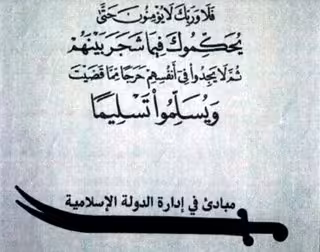 فَلَا وَرَبِّكَ لَا يُؤْمِنُونَ حَتَّىٰ
يُحَكِّمُوكَ فِيمَا شَجَرَ بَيْنَهُمْ
ثُمَّ لَا يَجِدُوا فِي أَنْفُسِهِمْ حَرَجًا مِمَّا قَضَيْتَ
وَيُسَلِّمُوا تَسْلِيمًا
مبادئ في إدارة الدولة الإسلامية